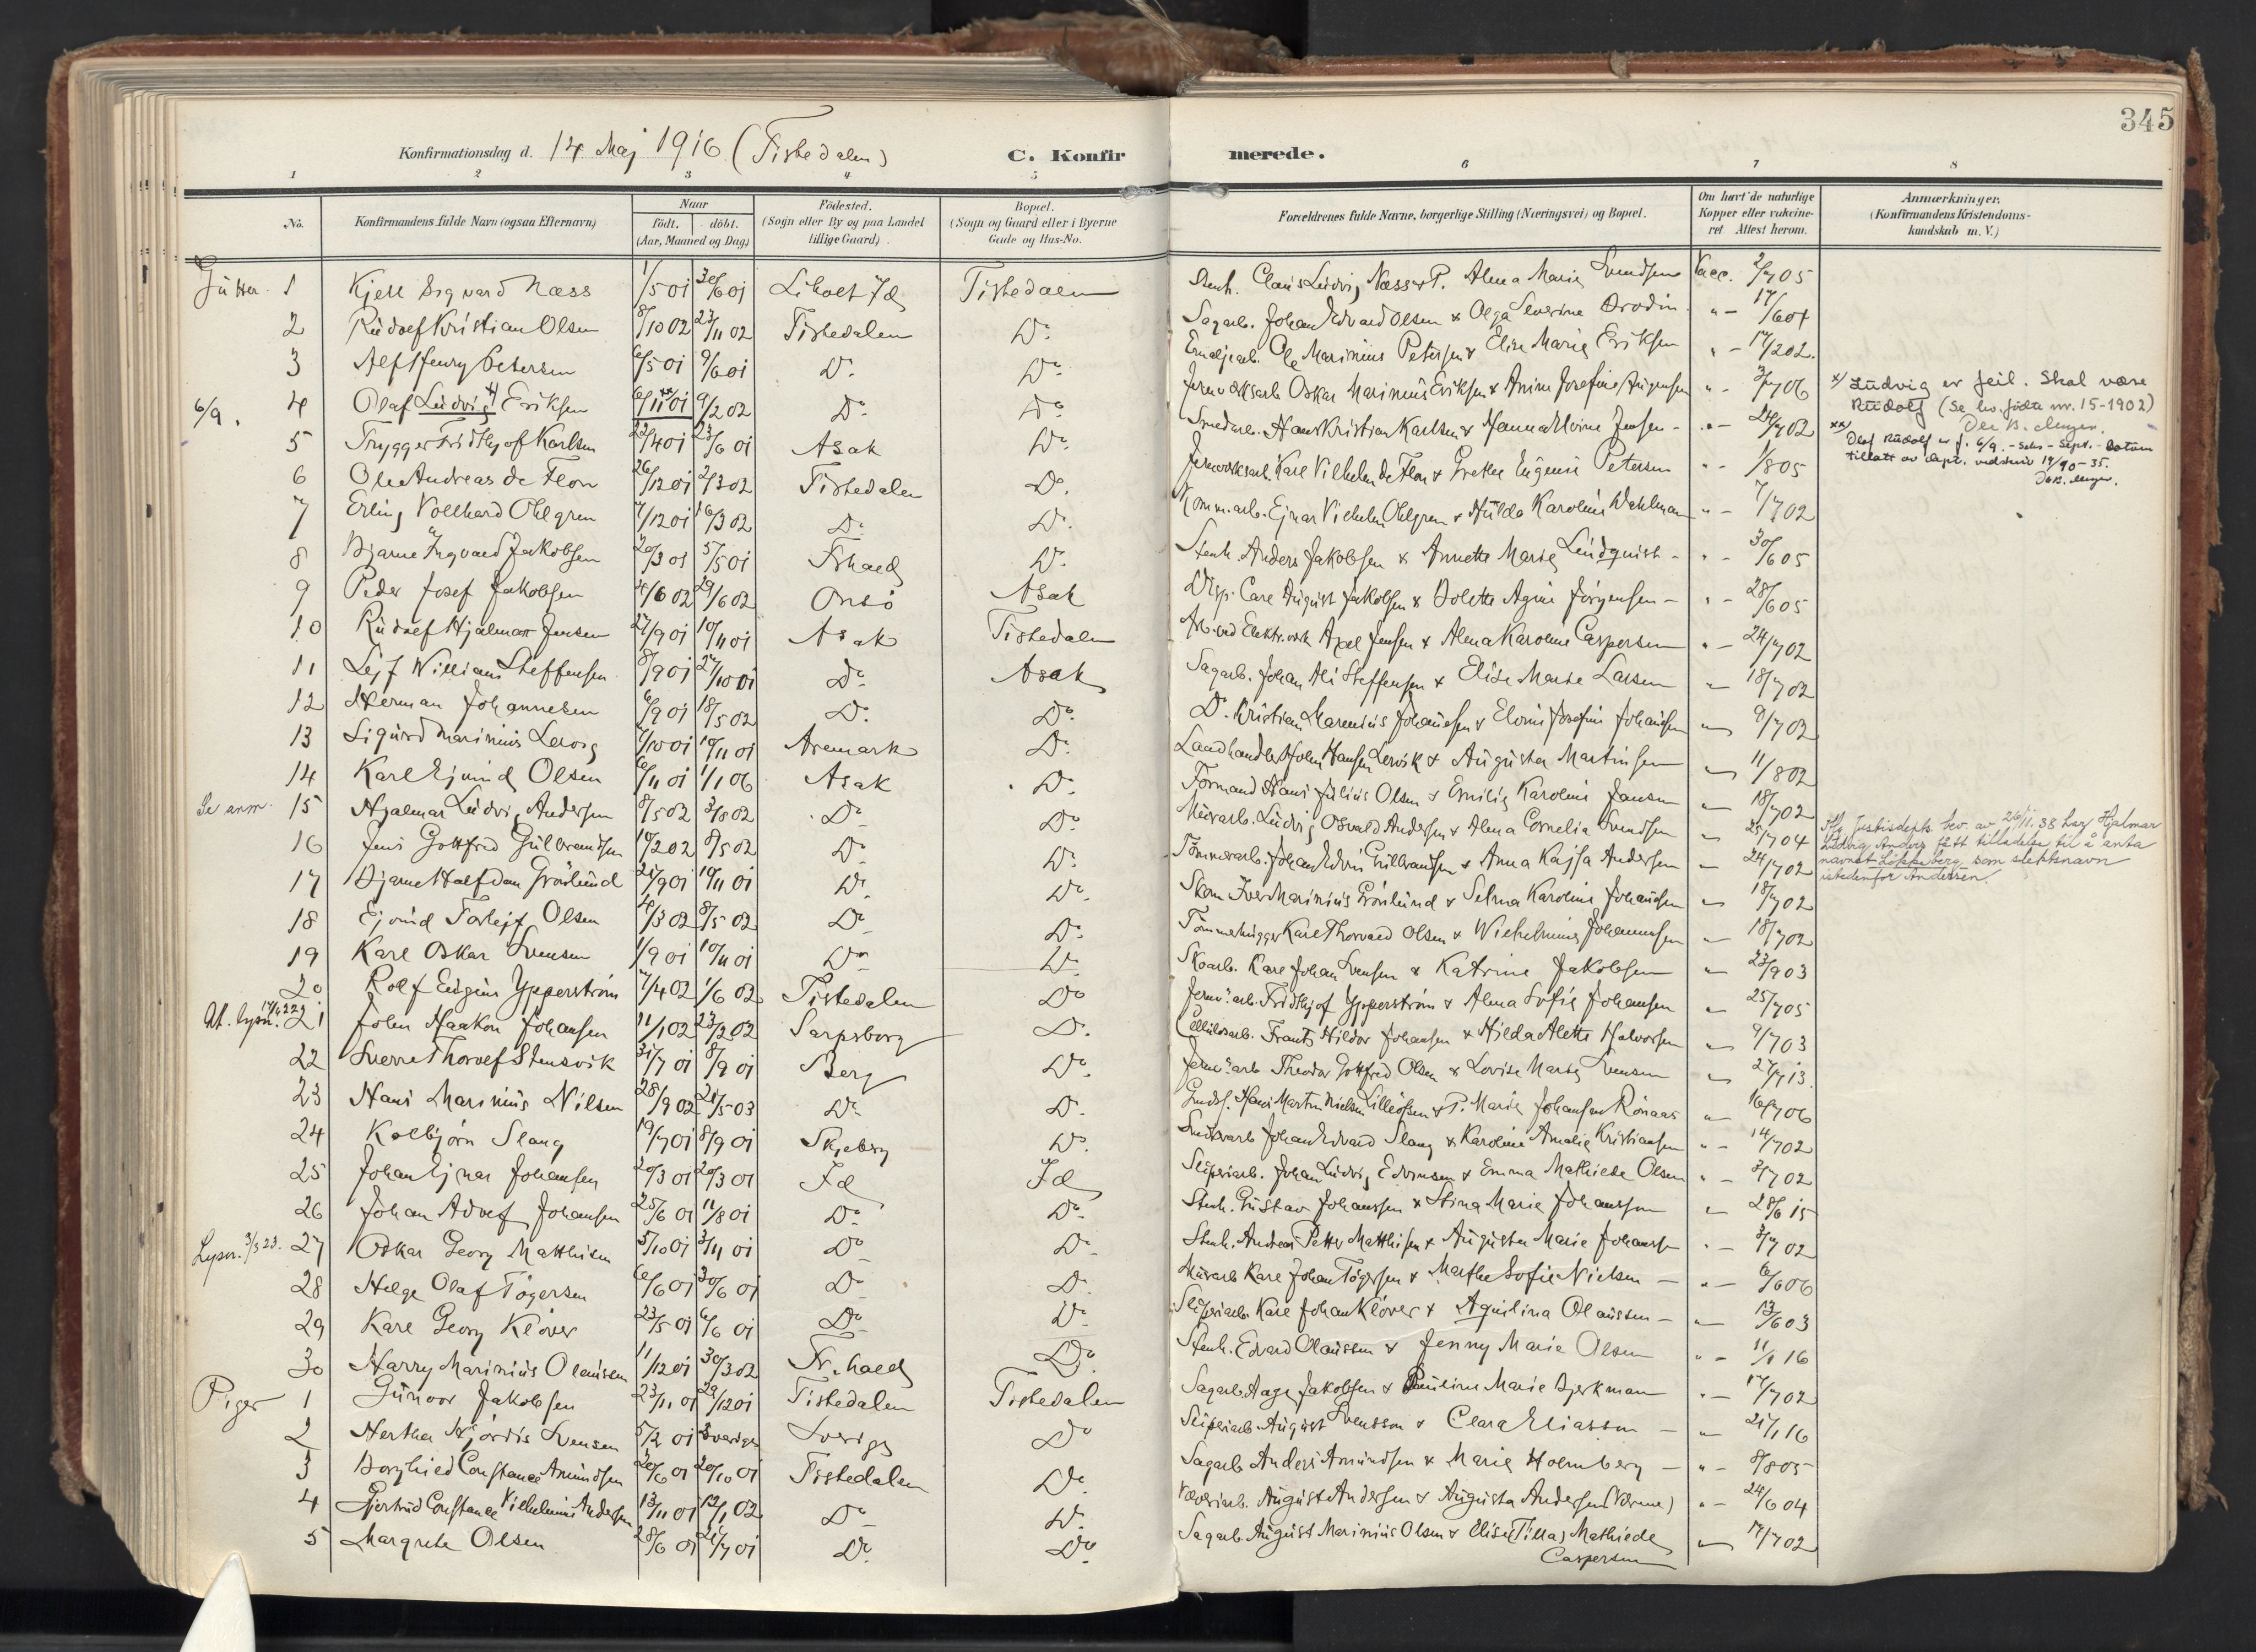 345
Konfirmationsdag d. 14 Maj 1916 (Tistedalen) C. Konfirmerede.
1 2 3 4 5 6 7 8
No. Konfirmandens fulde Navn (ogsaa Efternavn) Naar født. døbt. (Aar, Maaned og Dag) Fødested. (Sogn eller By og paa Landet tillige Gaard) Bopæl. (Sogn og Gaard eller i Byerne Gade og Hus-No. Forældrenes fulde Navne, borgerlige Stilling (Næringsvei) og Bopæl. Om havt de naturlige Kopper eller vakcineret Attest herom. Anmærkninger. (Konfirmandens Kristendomskundskab m. V.)
Gutter 1 Kjell Sigvard Næss 1/5 01 30/6 01 Tistedalen Stenh. Claus Ludvig Næss & P. Alma Marie Svendsen Vacc. 2/7 05
2 Rudolf Kristian Olsen 8/10 02 23/11 02 Tistedalen Do. Sagarb. Johan Edvard Olsen & Olga Severine Brodin "- 17/6 04
3 Alf Henry Petersen 6/5 01 9/6 01 Do. Do. Emaljearb. Ole Marinius Petersen & Elise Marie Eriksen "- 17/2 02.
6/9. 4 Olaf Ludvig x) Eriksen 6/11 xx) 01 9/2 02 Do. Do. Jernverksarb. Oskar Marinius Eriksen & Anine Josefine Jürgensen "- 3/7 06
x) Ludvig er feil. Skal være
Rudolf (Se bo. fødte nr. 15-1902)
xx) Olaf Rudolf er f. 6/9. - seks - Sept. - Datum
tillatt av dept. vedskriv 19/90-35.
5 Trygge Fridthjof Karlsen 22/4 01 23/6 01 Asak Do. Smedarb. Hans Kristian Karlsen & Hanna Elvine Jensen - "- 24/7 02
6 Ole Andreas de Flon 26/12 01 2/3 02 Tistedalen Do. Jernverksarb. Karl Vilhelm de Flon & Grethe Eugenie Petersen "- 1/8 05
7 Erling Vollhard Ohlgren 7/12 01 16/3 02 Do. Do. Komm.arb. Ejnar Vilhelm Ohlgren & Hulda Karoline Wahlman "- 7/7 02
8 Bjarne Ingvard Jakobsen 20/3 01 5/5 01 Frhald Do. Stenh. Anders Jakobsen & Annette Marie Lindquist - "- 30/6 05
9 Peder Josef Jakobsen 4/6 02 29/6 02 Onsø Asak Disp. Carl August Jakobsen & Bolette Agine Jörgensen - "- 28/6 05
10 Rudolf Hjalmar Jensen 27/9 01 10/11 01 Asak Tistedalen Arb. ved Elektr.verk Axel Jensen & Alma Karoline Caspersen "- 24/7 02
11 Lejf William Steffensen 8/9 01 27/10 01 Do. Asak Sagarb. Johan Ali Steffensen & Elise Marie Larsen - 18/7 02
12 Herman Johannesen 6/9 01 18/5 02 Do. Do. Do. Kristian Marenius Johansen & Elvine Josefine Johansen - 9/7 02
13 Sigurd Marinius Lervig 7/10 01 10/11 01 Aremark Do. Landhandler John Hansen Lervik & Augusta Martinsen - 11/8 02
14 Karl Ejvind Olsen 6/11 01 1/1 06 Asak Do. Formand Hans Julius Olsen & Emilie Karoline Jansen - 18/7 02
Se anm. 15 Hjalmar Ludvig Andersen 8/5 02 3/8 02 Do. Do. Murarb. Ludvig Osvald Andersen & Alma Cornelia Svendsen - 25/7 04
Iflg. Justisdepts. bev. av 28/11.38 har Hjalmar
Ludvig Anders. fått tilladelse til å anta
navnet Lökkeberg som slektsnavn
istedenfor Andersen.
16 Jens Gottfred Gulbrandsen 10/2 02 8/5 02 Do. Do. Tømmerarb. Johan Edvin Gulbrandsen & Anna Kajsa Andersen - 24/7 02
17 Bjarne Halfdan Grönlund 21/9 01 10/11 01 Do. Do. Skom. Iver Marinius Grönlund & Selma Karoline Johansen - 18/7 02
18 Ejvind Torlejf Olsen 4/3 02 8/5 02 Do. Do. Tømmerhugger Karl Thorvald Olsen & Wilhelmine Johannesen - 18/7 02
19 Karl Oskar Svensen 1/9 01 10/11 01 Do. Do. Skoarb. Karl Johan Svensen & Katrine Jakobsen - 23/9 03
20 Rolf Eugen Ypperström 7/4 02 1/6 02 Tistedalen Do. Jernv.arb. Fridthjof Ypperström & Alma Sofie Johansen - 25/7 05
At. lysn. 17/6 22 21 John Haakon Johansen 11/1 02 23/2 02 Sarpsborg Do. Cellulosarb. Frants Hildor Johansen & Hilda Alette Halvorsen - 9/7 03
22 Sverre Thorolf Stensvik 31/7 01 8/9 01 Berg Do. Jernv.arb. Theodor Gottfred Olsen & Lovise Marie Svensen - 27/7 13.
23 Hans Marinius Nilsen 28/9 02 21/5 03 Do. Do. Hans Martin Nielsen & P. Marie Johansen Rönaas - 16/7 06
24 Kolbjörn Slang 19/7 01 8/9 01 Skjeberg Do. Johan Edvard Slang & Karoline Amalie Kristiansen "- 14/7 02
25 Johan Ejnar Johansen 20/3 01 20/3 01 Id Id Sliperiarb. Johan Ludvig Edvinsen & Emma Mathilde Olsen "- 3/7 02
26 Johan Adolf Johansen 25/6 01 11/8 01 Do. Do. Stenh. Gustav Johanssen & Stina Marie Johanssen - 28/6 15
Lysn. 3/3 23. 27 Oskar Georg Matthisen 5/10 01 3/11 01 Do. Do. Stenh. Andreas Petter Matthisen & Augusta Marie Johanss "- 3/7 02
28 Helge Olaf Tögersen 6/6 01 30/6 01 Do. Do. Murarb. Karl Johan Tögersen & Marthe Sofie Nielsen - "- 6/6 06
29 Karl Georg Klöver 23/5 01 6/6 01 Do. Do. Sliperiarb. Karl Johan Klöver & Aquilina Olaussen - "- 13/6 03
30 Harry Marinius Olaussen 11/12 01 30/3 02 Fr.hald Do. Stenh. Edvard Olaussen & Jenny Marie Olsen "- 11/1 16
Piger 1 Gunvor Jakobsen 23/11 01 29/12 01 Tistedalen Tistedalen Sagarb. Aage Jakobsen & Pauline Marie Bjerkman "- 17/7 02
2 Hertha Hjördis Svensen 5/2 01 Sverige Sverige Do. Sliperiarb. August Svensson & Clara Eliasson - "- 21/1 16
3 Borghild Constance Amundsen 20/6 01 20/10 01 Tistedalen Do. Sagarb. Anders Amundsen & Marie Holmberg - "- 8/8 05
4 Gjertrud Constance Vilhelmine Andersen 13/11 01 12/1 02 Do. Do. Væveriarb. August Andersen & Augusta Andersen (Værme) "- 24/6 04
5 Margrete Olsen 28/6 01 21/7 01 Do. Do. Sagarb. August Marinius Olsen & Elise (Tilla) Mathilde Caspersen - 17/7 02